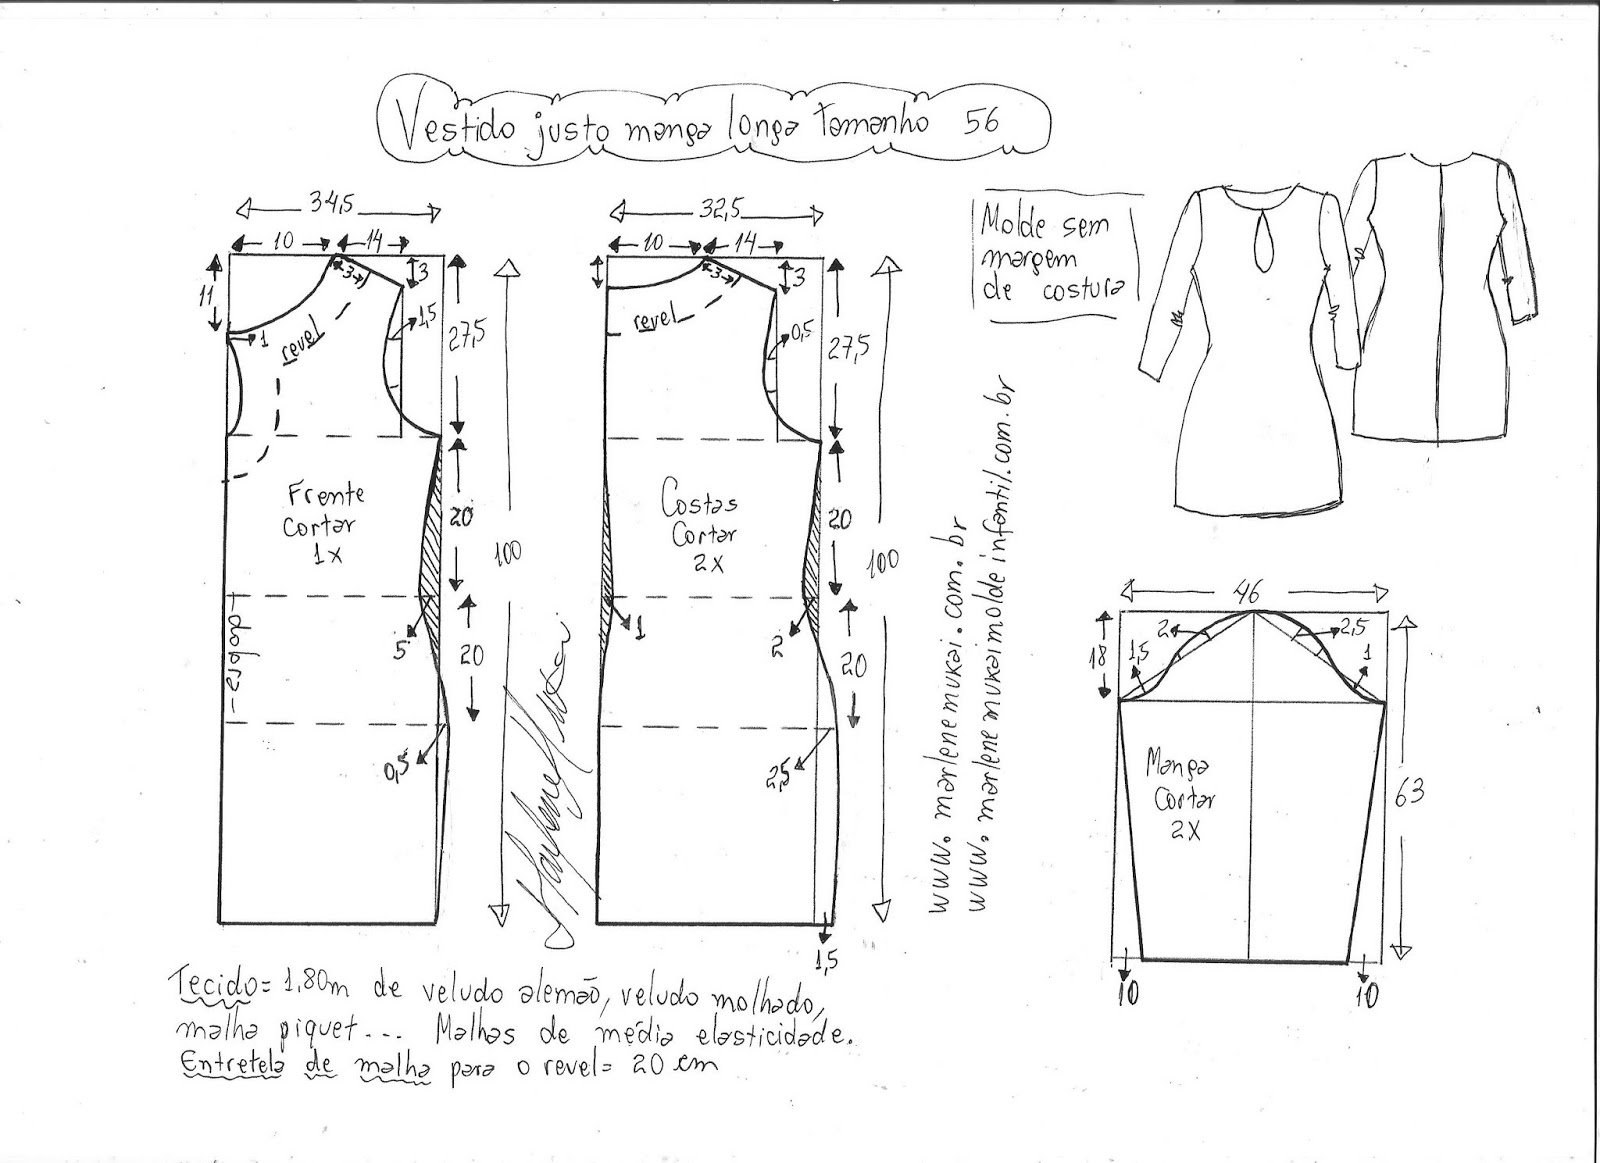 Vestido justo manga longa tamanho 56
34,5
10
14
11
3
3
1
revel
1,5
27,5
Frente
cortar
1x
20
100
-dobra-
5
20
0,5
32,5
10
14
3
3
revel
0,5
27,5
Costas
Cortar
2x
20
100
1
2
20
2,5
1,5
www.marlenemukai.com.br
www.marlenemukaimoldeinfantil.com.br
Molde sem
margem
de costura
46
18
1,5
2
2,5
1
Manga
Cortar
2x
63
10
10
Tecido= 1,80m de veludo alemão, veludo molhado,
malha piquet... Malhas de média elasticidade.
Entretela de malha para o revel= 20 cm